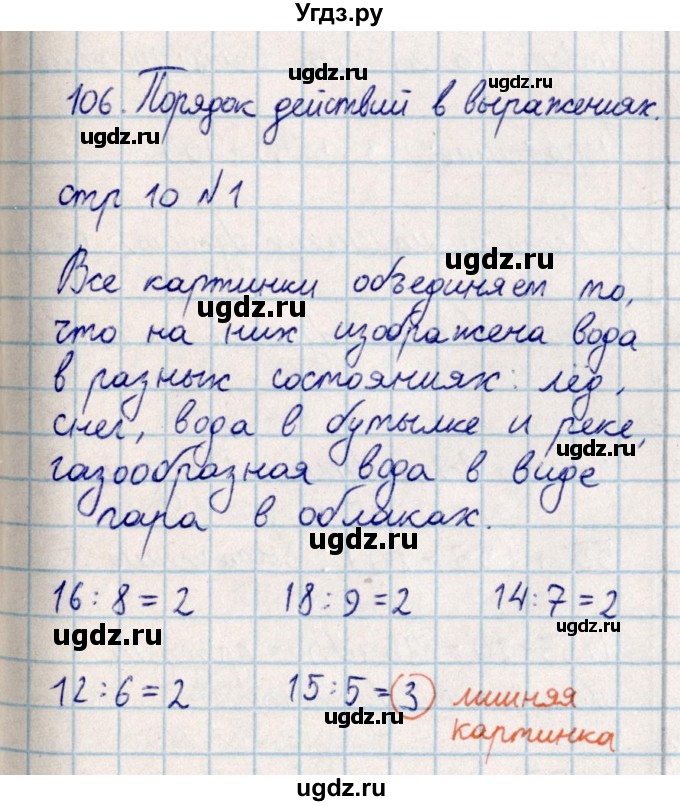 Угдз.ру
ugdz.ru
106. Порядок действий в выражениях.
ugdz.ru ugdz.ru
стр 10 №1
ugdz.ru
Все картинки объединяет то,
ugdz.ru
что на них изображена вода
в разных состояниях: лёд,
снег, вода в бутылке и реке,
ugdz.ru
газообразная вода в виде
пара в облаках.
ugdz.ru
16 : 8 = 2 18 : 9 = 2 14 : 7 = 2
ugdz.ru ugdz.ru
12 : 6 = 2 15 : 5 = 3 лишняя
ugdz.ru
картинка
ugdz.ru